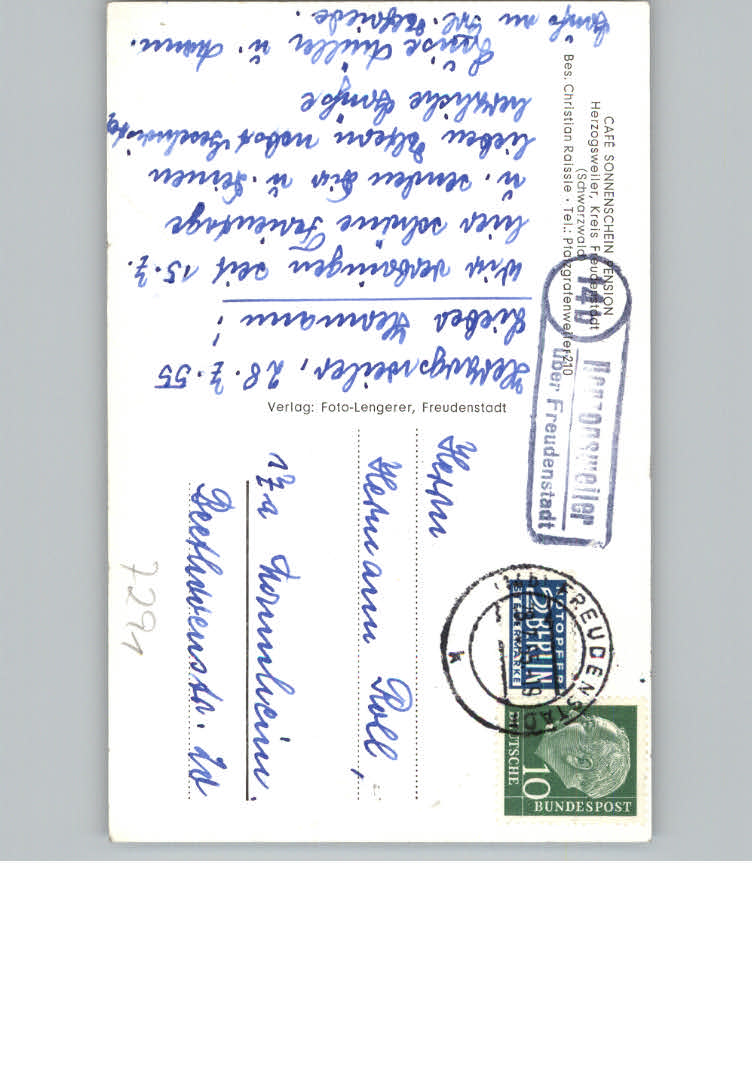 CAFÉ SONNENSCHEIN PENSION
Herzogsweiler, Kreis Freudenstadt
(Schwarzwald)
Bes. Christian Raissle · Tel.: Pfalzgrafenweiler 210
Herzogsweiler, 28.7.55
Lieber Hermann!
Wir verbringen seit 15.7.
hier schöne Ferientage
u. senden Dir u. Deinen
lieben Eltern nebst
herzliche Grüße
Müller u.
Gruß an Frl.
Verlag: Foto-Lengerer, Freudenstadt
14b
Herzogsweiler
über Freudenstadt
FREUDENSTADT
k
NOTOPFER
2 BERLIN
STEUERMARKE
10
DEUTSCHE
BUNDESPOST
Herrn
Hermann Roll,
17a Mannheim.
Beethovenstr. 20
7291